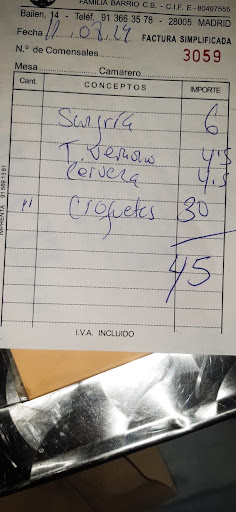 FAMILIA BARRIO C.B. - C.I.F. E-80497555
Bailen, 14 - Teléf. 91 366 35 78 - 28005 MADRID
Fecha 11.07.19 FACTURA SIMPLIFICADA
N.º de Comensales 3059
Mesa Camarero
Cant. CONCEPTOS IMPORTE
Sangria 6
T. Verano 4'5
Cerveza 4'5
" Croquetas 30
45
I.V.A. INCLUIDO
IMPRENTA 91